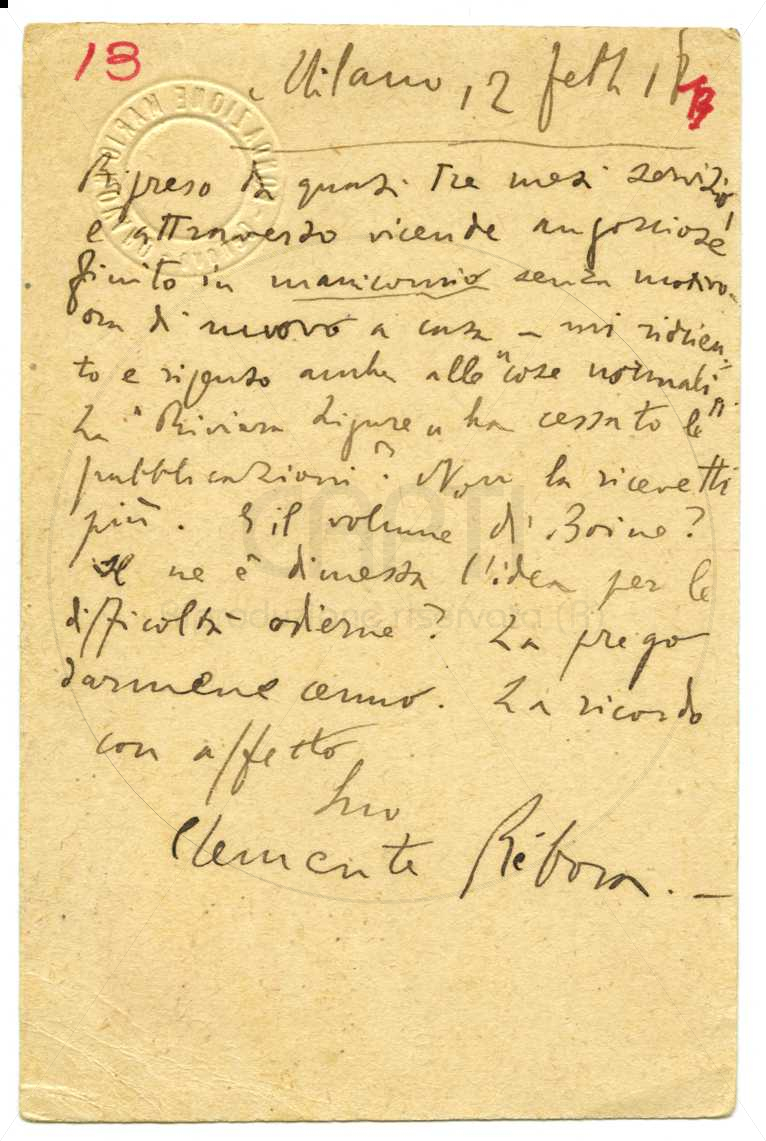 13
Milano, 12 febb. 18
Ripreso da quasi tre mesi servizio,
e attraverso vicende angosciose
finito in manicomio senza motivo -
ora di nuovo a casa - mi
to e ripenso anche alle "cose normali".
La "Riviera Ligure" ha cessato le
pubblicazioni? Non la ricevetti
più. E il volume di Boine?
Se ne è dimessa l'idea per le
difficoltà odierne? La prego
darmene cenno. La ricordo
con affetto
Suo
Clemente Rébora. -
FONDAZIONE MARIO NOVARO
riproduzione riservata (R)